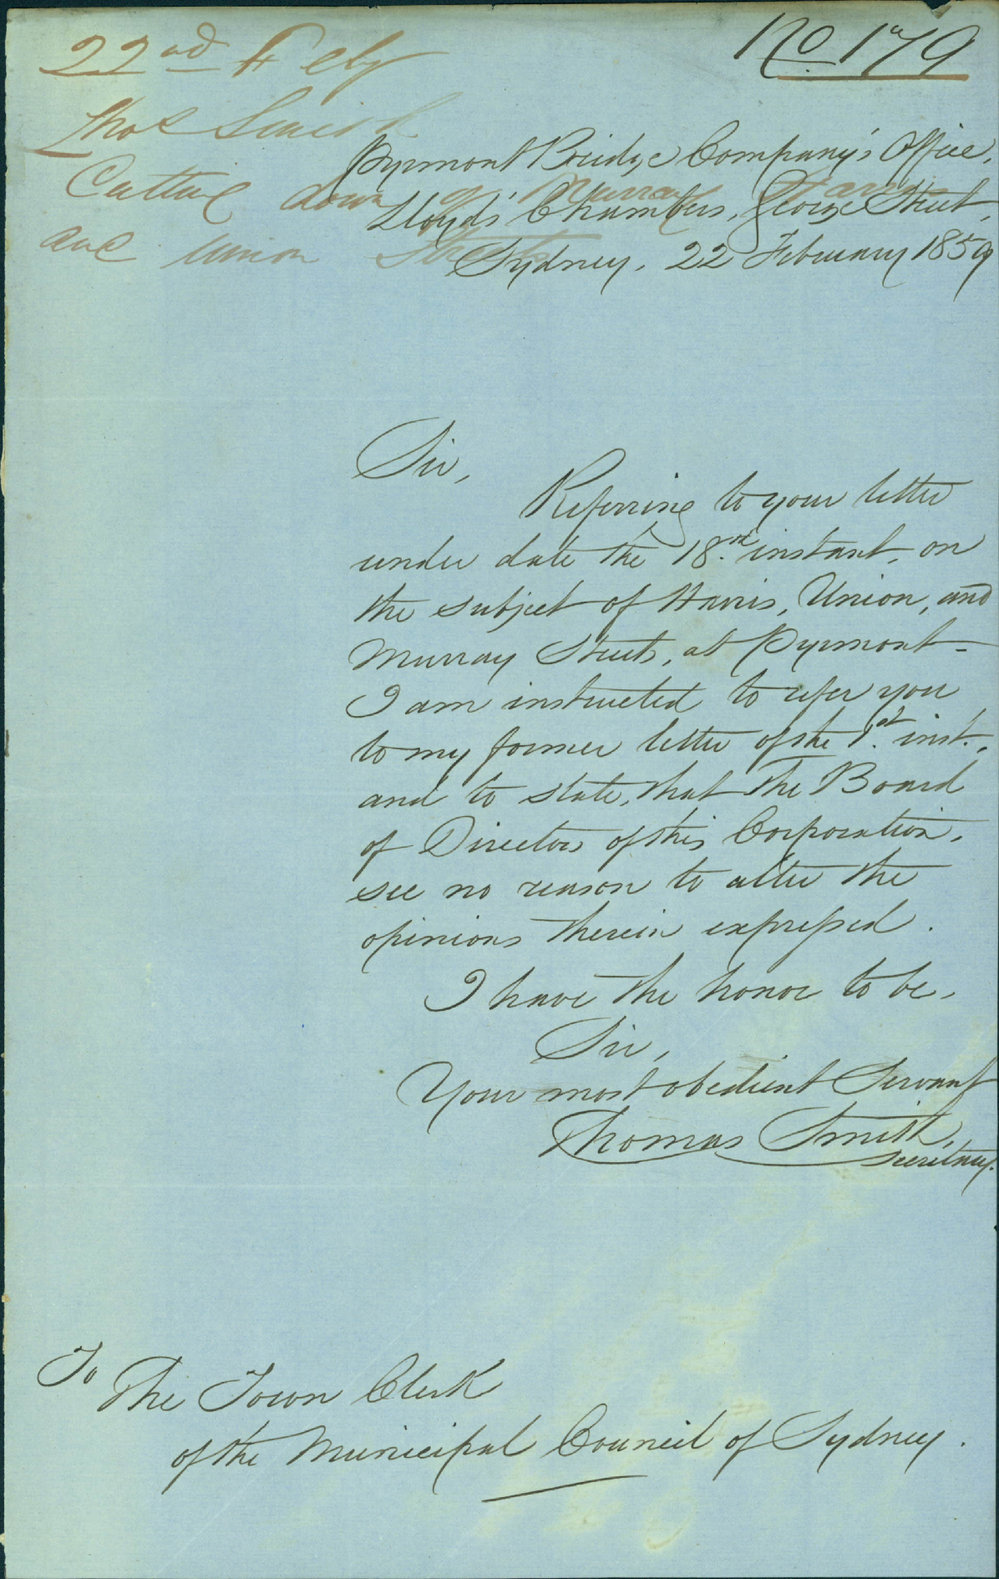 22nd Feby
No 179
Thos Smith
Cutting down of Murray Harris
and Union Streets
Pyrmont Bridge Company's Office,
Lloyds' Chambers, George Street,
Sydney, 22 February 1859
Sir,
Referring to your letter
under date the 18th instant, on
the subject of Harris, Union, and
Murray Streets, at Pyrmont -
I am instructed to refer you
to my former letter of the 1st inst.,
and to state, that the Board
of Directors of this Corporation,
see no reason to alter the
opinions therein expressed.
I have the honor to be,
Sir,
Your most obedient Servant
Thomas Smith,
Secretary.
To
The Town Clerk
of the Municipal Council of Sydney.